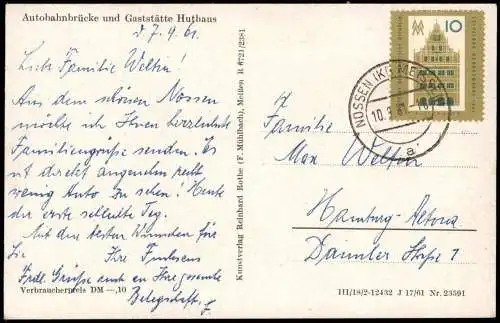 Autobahnbrücke und Gaststätte Huthaus
d. 7.9.61.
Liebe Familie Welfen!
Aus dem schönen Nossen
möchte ich Ihnen herzliche
Familiengrüße senden. Es
ist direkt angenehm recht
wenig Auto zu sehen! Heute
der erste schlechte Tag.
Mit den besten Wünschen für
Sie Ihre
Frdl. Grüße auch an Ihre gesamte
Belegschaft.
Verbraucherpreis DM —,10
Kunstverlag Reinhard Rothe (F. Mühlbach), Meißen R 6721/2381
10
NOSSEN (KR MEISSEN)
10.9.61
a
Familie
Max Welfen
Hamburg-Altona
Daimler Straße 7
III/18/2-12432 J 17/61 Nr. 23591